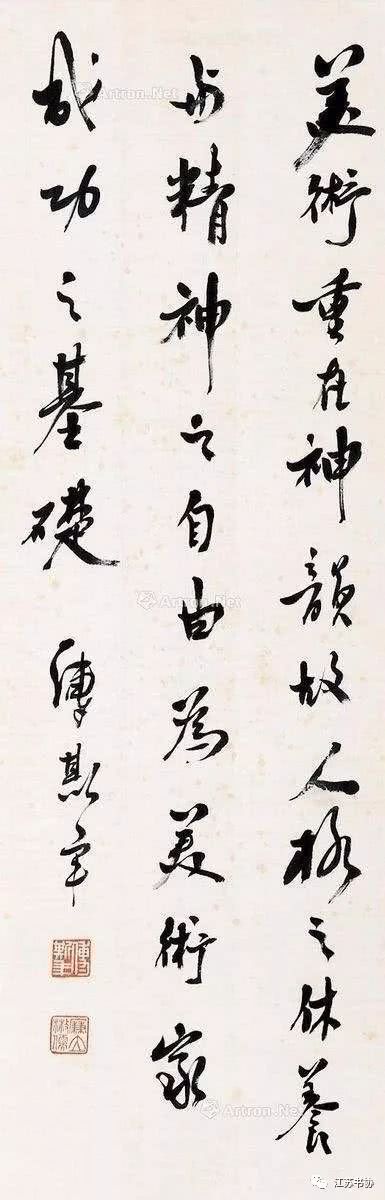 美術重在神韻故人格之休養
与精神之自由為美術家
成功之基礎
傅斯年
Artron.Net
Artron.Net
Artron.Net
江苏书协